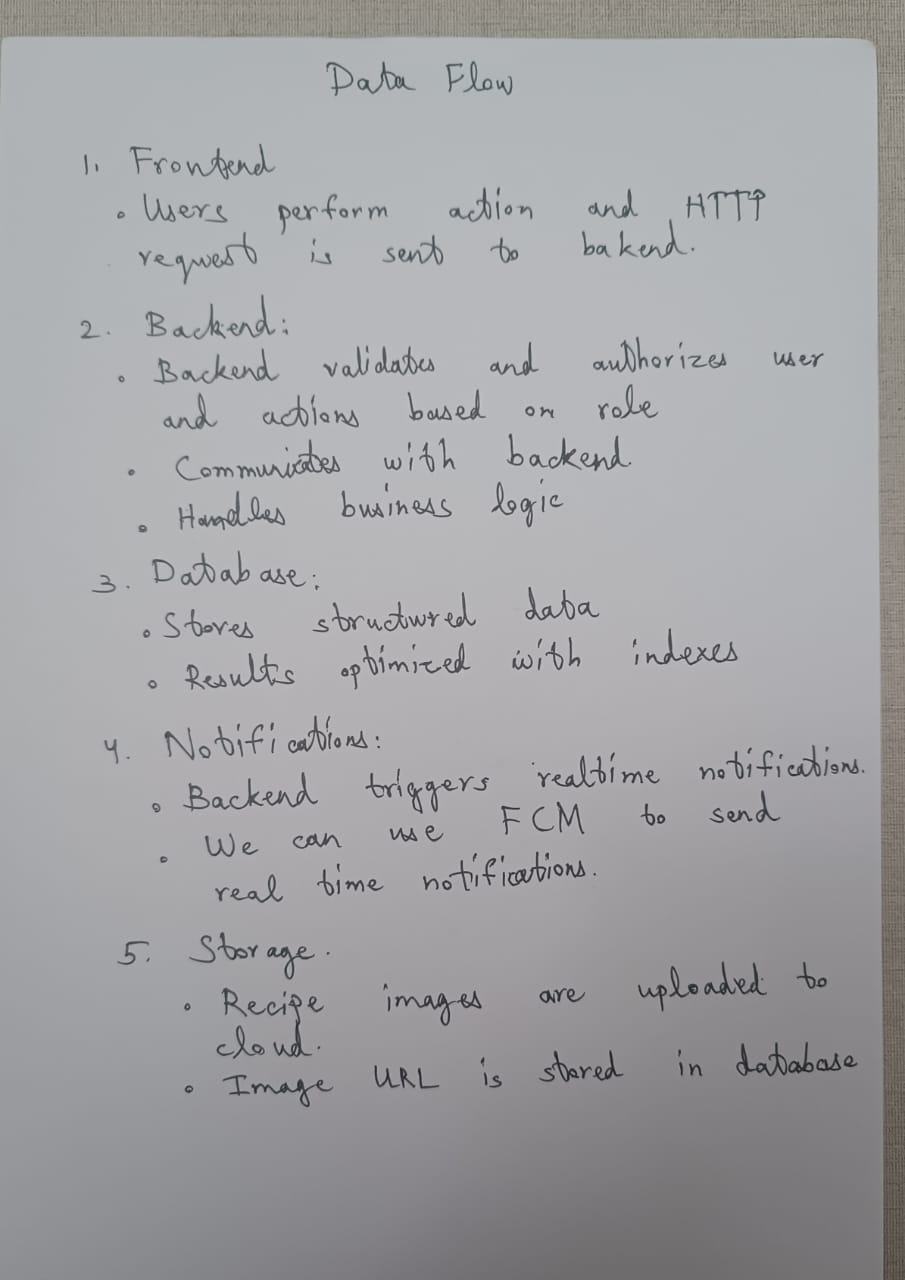 Data Flow
1. Frontend
• Users perform action and HTTP
request is sent to bakend.
2. Backend:
• Backend validates and authorizes user
and actions based on role
• Communicates with backend.
• Handles business logic
3. Database:
• Stores structured data
• Results optimized with indexes
4. Notifications:
• Backend triggers realtime notifications.
• We can use FCM to send
real time notifications.
5. Storage.
• Recipe images are uploaded to
cloud.
• Image URL is stored in database